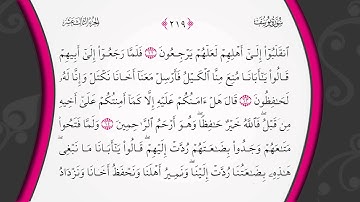 سورة يوسف ٢١٩ الجزء الثالث عشر
ٱنقَلَبُوٓا۟ إِلَىٰٓ أَهْلِهِمْ لَعَلَّهُمْ يَرْجِعُونَ ٦٢ فَلَمَّا رَجَعُوٓا۟ إِلَىٰٓ أَبِيهِمْ
قَالُوا۟ يَٰٓأَبَانَا مُنِعَ مِنَّا ٱلْكَيْلُ فَأَرْسِلْ مَعَنَآ أَخَانَا نَكْتَلْ وَإِنَّا لَهُۥ
لَحَٰفِظُونَ ٦٣ قَالَ هَلْ ءَامَنُكُمْ عَلَيْهِ إِلَّا كَمَآ أَمِنتُكُمْ عَلَىٰٓ أَخِيهِ
مِن قَبْلُ ۖ فَٱللَّهُ خَيْرٌ حَٰفِظًا ۖ وَهُوَ أَرْحَمُ ٱلرَّٰحِمِينَ ٦٤ وَلَمَّا فَتَحُوا۟
مَتَٰعَهُمْ وَجَدُوا۟ بِضَٰعَتَهُمْ رُدَّتْ إِلَيْهِمْ ۖ قَالُوا۟ يَٰٓأَبَانَا مَا نَبْغِى ۖ
هَٰذِهِۦ بِضَٰعَتُنَا رُدَّتْ إِلَيْنَا ۖ وَنَمِيرُ أَهْلَنَا وَنَحْفَظُ أَخَانَا وَنَزْدَادُ